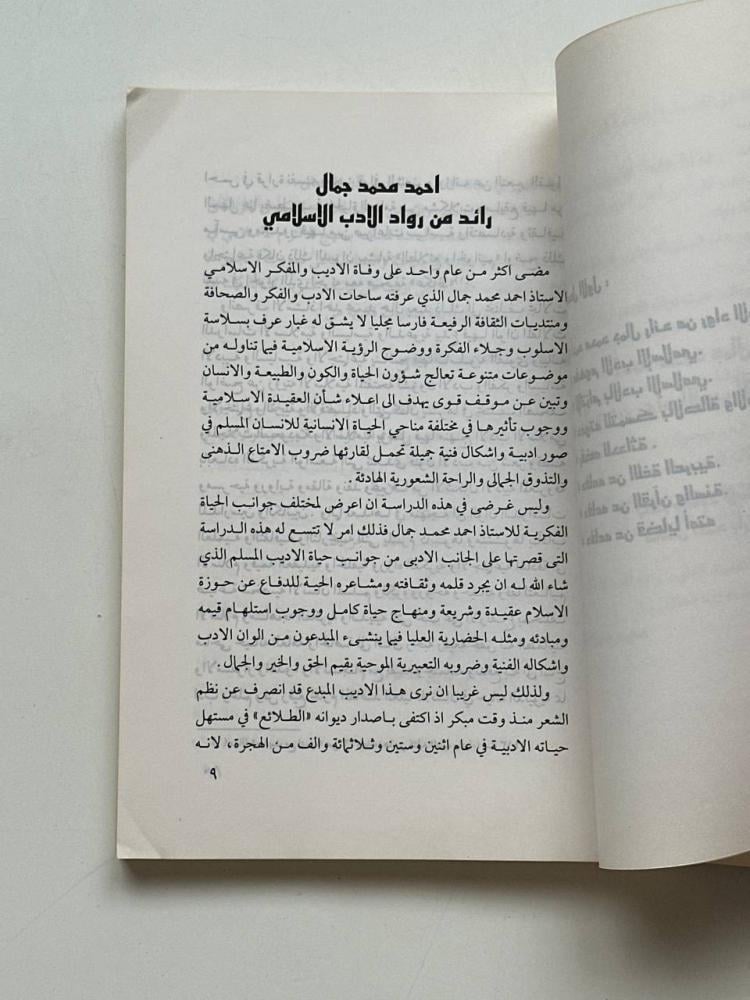 احمد محمد جمال
رائد من رواد الادب الاسلامي
مضى اكثر من عام واحد على وفاة الاديب والمفكر الاسلامي
الاستاذ احمد محمد جمال الذي عرفته ساحات الادب والفكر والصحافة
ومنتديات الثقافة الرفيعة فارسا مجليا لا يشق له غبار عرف بسلاسة
الاسلوب وجلاء الفكرة ووضوح الرؤية الاسلامية فيما تناوله من
موضوعات متنوعة تعالج شؤون الحياة والكون والطبيعة والانسان
وتبين عن موقف قوى يهدف الى اعلاء شأن العقيدة الاسلامية
ووجوب تأثيرها في مختلفة مناحي الحياة الانسانية للانسان المسلم في
صور ادبية واشكال فنية جميلة تحمل لقارئها ضروب الامتاع الذهنى
والتذوق الجمالى والراحة الشعورية الهادئة .
وليس غرضى في هذه الدراسة ان اعرض لمختلف جوانب الحياة
الفكرية للاستاذ احمد محمد جمال فذلك امر لا تتسع له هذه الدراسة
التى قصرتها على الجانب الادبى من جوانب حياة الاديب المسلم الذي
شاء الله له ان يجرد قلمه وثقافته ومشاعره الحية للدفاع عن حوزة
الاسلام عقيدة وشريعة ومنهاج حياة كامل ووجوب استلهام قيمه
ومبادئه ومثله الحضارية العليا فيما ينشىء المبدعون من الوان الادب
واشكاله الفنية وضروبه التعبيرية الموحية بقيم الحق والخير والجمال .
ولذلك ليس غريبا ان نرى هذا الاديب المبدع قد انصرف عن نظم
الشعر منذ وقت مبكر اذ اكتفى باصدار ديوانه «الطلائع» في مستهل
حياته الادبية في عام اثنين وستين وثلاثمائة والف من الهجرة، لانه
٩